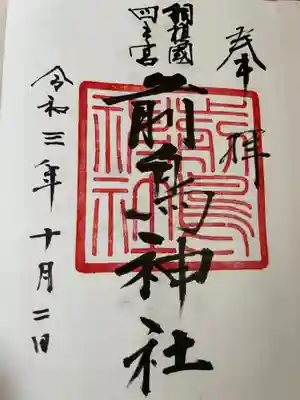 奉拝
相模國
四之宮
前鳥神社
令和三年十月二日